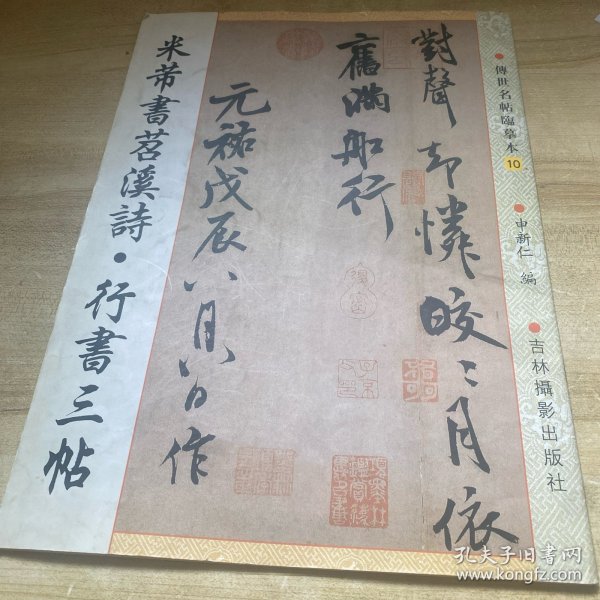 傳世名帖臨摹本10
申新仁 編
吉林攝影出版社
對聲却憐皎〻月依
舊滿船行
元祐戊辰八月八日作
米芾書苕溪詩·行書三帖
孔夫子旧书网
www.kongfz.com